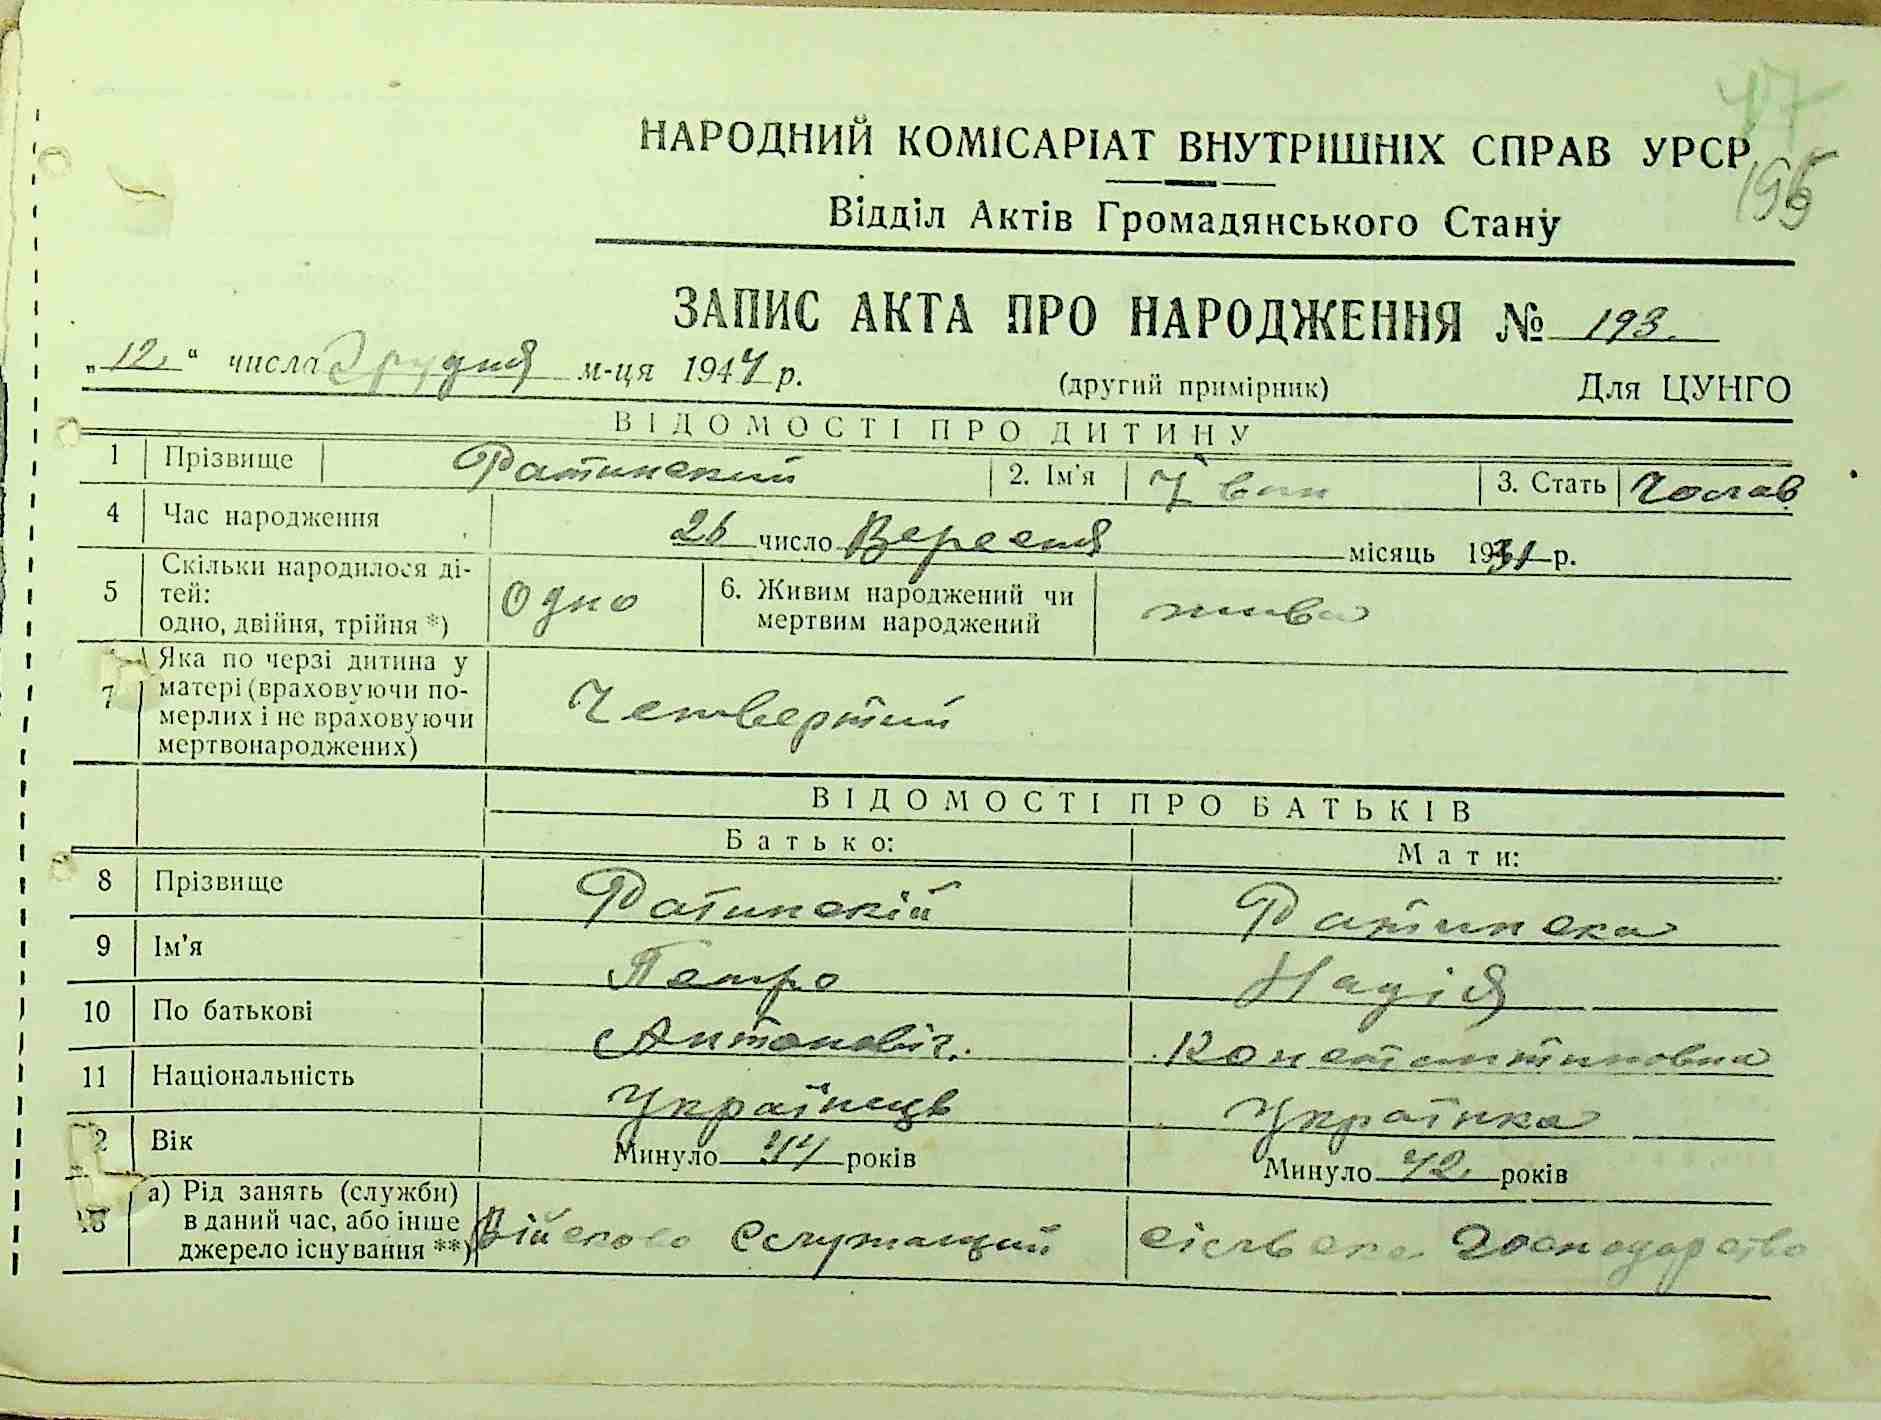 47
195
НАРОДНИЙ КОМІСАРІАТ ВНУТРІШНІХ СПРАВ УРСР
Відділ Актів Громадянського Стану
ЗАПИС АКТА ПРО НАРОДЖЕННЯ № 193.
„12" числа Грудня м-ця 1944 р. (другий примірник) Для ЦУНГО
ВІДОМОСТІ ПРО ДИТИНУ
1 Прізвище Ратинский 2. Ім'я Іван 3. Стать Чолов
4 Час народження 26 число Вересня місяць 1931 р.
5 Скільки народилося ді-
тей:
одно, двійня, трійня *) Одно 6. Живим народжений чи
мертвим народжений жива
7 Яка по черзі дитина у
матері (враховуючи по-
мерлих і не враховуючи
мертвонароджених) Четвертий
ВІДОМОСТІ ПРО БАТЬКІВ
Батько: Мати:
8 Прізвище Ратинскій Ратинска
9 Ім'я Петро Надія
10 По батькові Антоновіч. Константиновна
11 Національність Українець Українка
12 Вік Минуло 44 років Минуло 42 років
13 а) Рід занять (служби)
в даний час, або інше
джерело існування **) Війсково Служащий сільска господарство